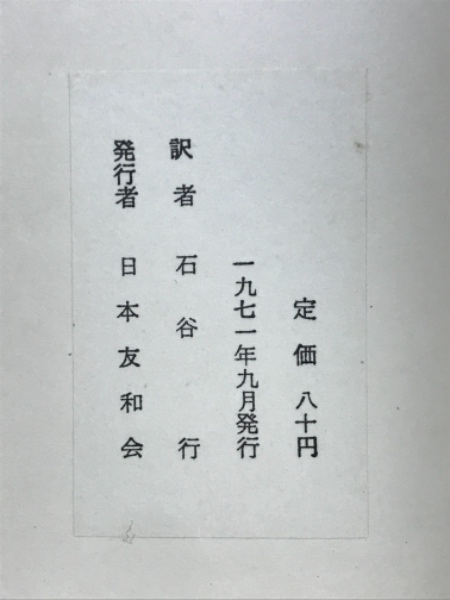 定価八十円
一九七一年九月発行
訳者 石谷行
発行者 日本友和会